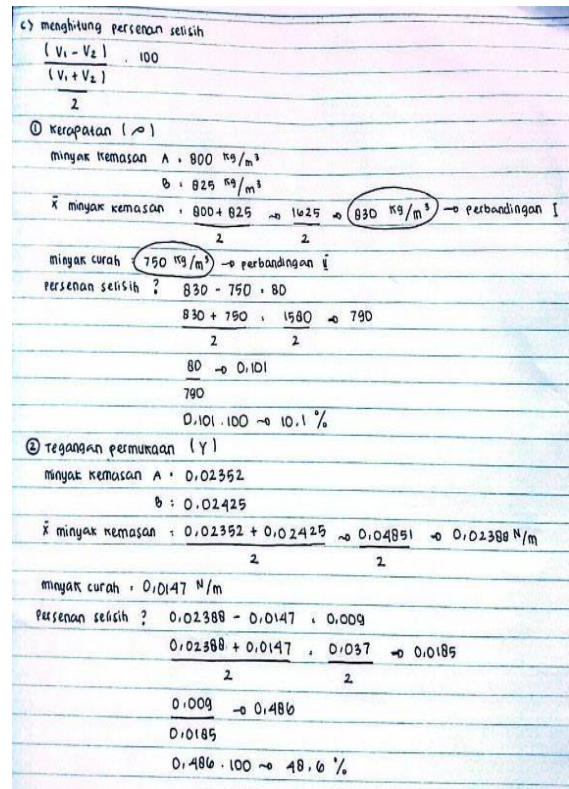 c) menghitung persenan selisih
( V₁ - V₂ ) . 100
( V₁ + V₂ )
2
① Kerapatan ( ρ )
minyak kemasan A : 800 kg/m³
B : 825 kg/m³
x̄ minyak kemasan : 800 + 825 → 1625 → 830 kg/m³ → perbandingan I
2 2
minyak curah : 750 kg/m³ → perbandingan ii
persenan selisih ? 830 - 750 : 80
830 + 750 : 1580 → 790
2 2
80 → 0,101
790
0,101 . 100 → 10,1 %
② Tegangan permukaan ( γ )
minyak kemasan A : 0,02352
B : 0,02425
x̄ minyak kemasan : 0,02352 + 0,02425 → 0,04851 → 0,02388 N/m
2 2
minyak curah : 0,0147 N/m
Persenan selisih ? 0,02388 - 0,0147 : 0,009
0,02388 + 0,0147 : 0,037 → 0,0185
2 2
0,009 → 0,486
0,0185
0,486 . 100 → 48,6 %